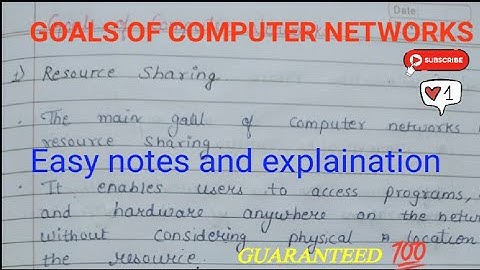 Date:
GOALS OF COMPUTER NETWORKS
SUBSCRIBE
1
1) Resource Sharing
. The main goal of computer networks
resource sharing.
Easy notes and explaination
. It enables users to access programs,
and hardware anywhere on the netw
without considering physical location
the resource.
GUARANTEED 💯